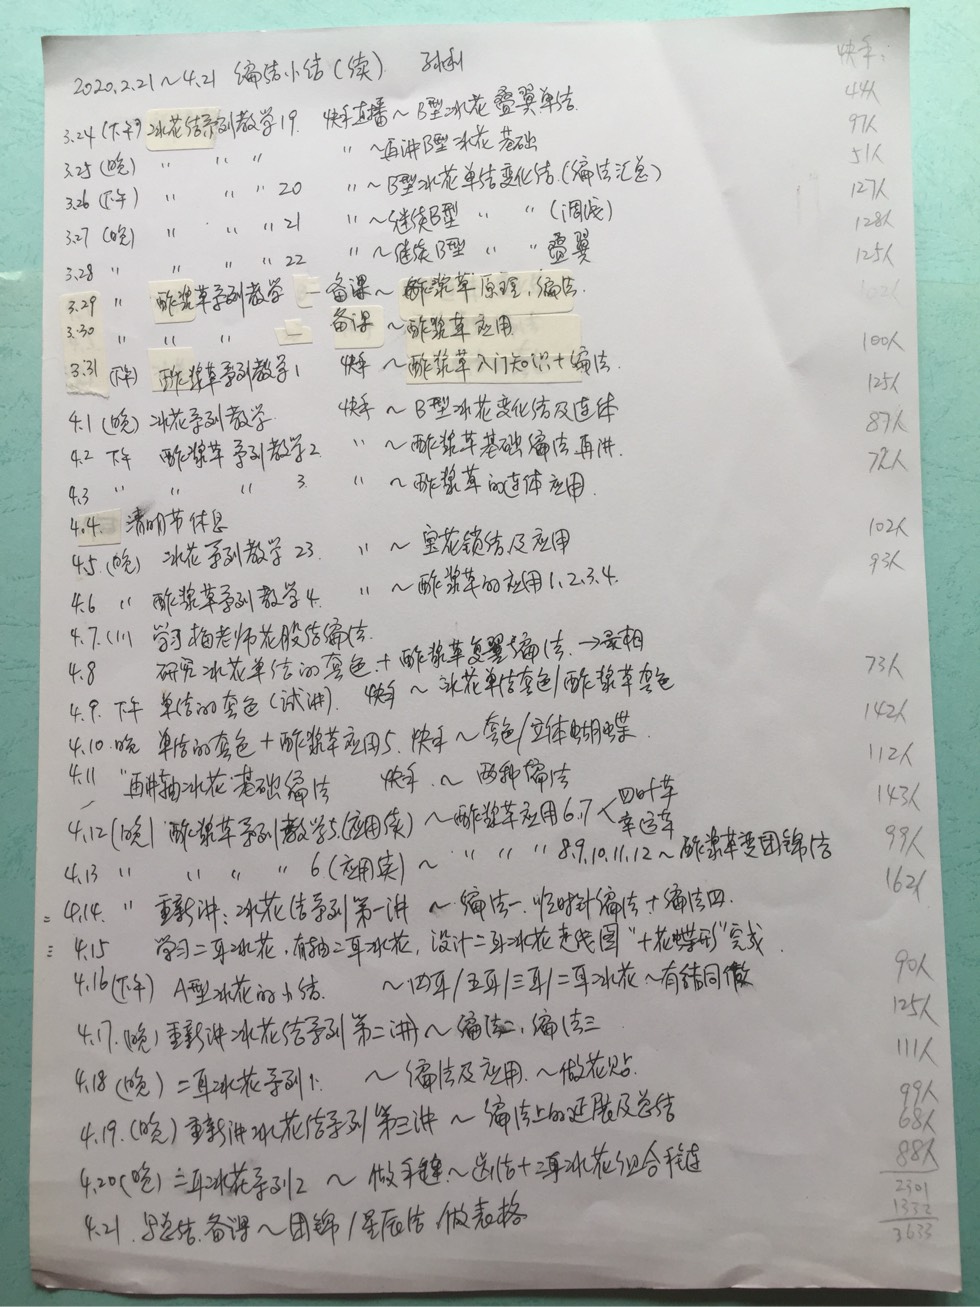 2020.2.21~4.21 编结小结(续)
快手:
3.24(下午) 冰花结系列教学19. 快手直播~B型冰花叠翼单结. 44人
3.25(晚) 〃 〃 〃 〃~再讲B型冰花基础 97人
3.26(下午) 〃 〃 〃 20 〃~B型冰花单结变化结.(编法汇总) 51人
3.27(晚) 〃 〃 〃 21 〃~继续B型 〃 〃 (调减) 127人
3.28 〃 〃 〃 〃 22 〃~继续B型 〃 〃 叠翼 128人
125人
3.29 〃 酢浆草系列教学 — 备课~酢浆草原理、编法. 102人
3.30 〃 〃 〃 〃 二 备课~酢浆草应用
3.31(下午) 酢浆草系列教学1 快手~酢浆草入门知识+编法. 100人
4.1(晚) 冰花系列教学 快手~B型冰花变化结及连体 125人
4.2 下午 酢浆草系列教学2 〃~酢浆草基础编法再讲. 87人
4.3 〃 〃 〃 3. 〃~酢浆草的连体应用. 72人
4.4. 清明节休息
4.5.(晚) 冰花系列教学23. 〃~宝花锁结及应用 102人
4.6 〃 酢浆草系列教学4. 〃~酢浆草的应用1.2.3.4. 93人
4.7. 学习梅老师花股结编法.
4.8 研究冰花单结的套色.+酢浆草复翼编法.→亮相
4.9. 下午 单结的套色(试讲). 快手~冰花单结套色/酢浆草套色 73人
4.10.晚 单结的套色+酢浆草应用5. 快手~套色/立体蝴蝶. 142人
4.11 〃 再讲抽冰花基础编法 快手.~两种编法 112人
4.12(晚) 酢浆草系列教学5.(应用续)~酢浆草应用6.7<四叶草 幸运草 143人
4.13 〃 〃 〃 〃 6(应用续)~〃 〃 〃 8.9.10.11.12~酢浆草变团锦结 99人
4.14. 〃 重新讲:冰花结系列第一讲 ~编法一.顺时针编法+编法四. 162人
4.15 学习二耳冰花,有轴二耳冰花,设计二耳冰花走线图"十花蝶形"完成
4.16(下午) A型冰花的小结. ~四耳/五耳/三耳/二耳冰花~有结同做 90人
4.17.(晚) 重新讲冰花结系列第二讲)~编法二,编法三 125人
4.18(晚) 二耳冰花系列1. ~编法及应用.~做花贴. 111人
4.19.(晚) 重新讲冰花结系列第三讲~编法上的延展及总结 99人
68人
4.20(晚) 二耳冰花系列2 ~做手链~选结+二耳冰花组合手链 88人
4.21. 总结.备课~团锦/星辰结.做表格
2301
1332
3633